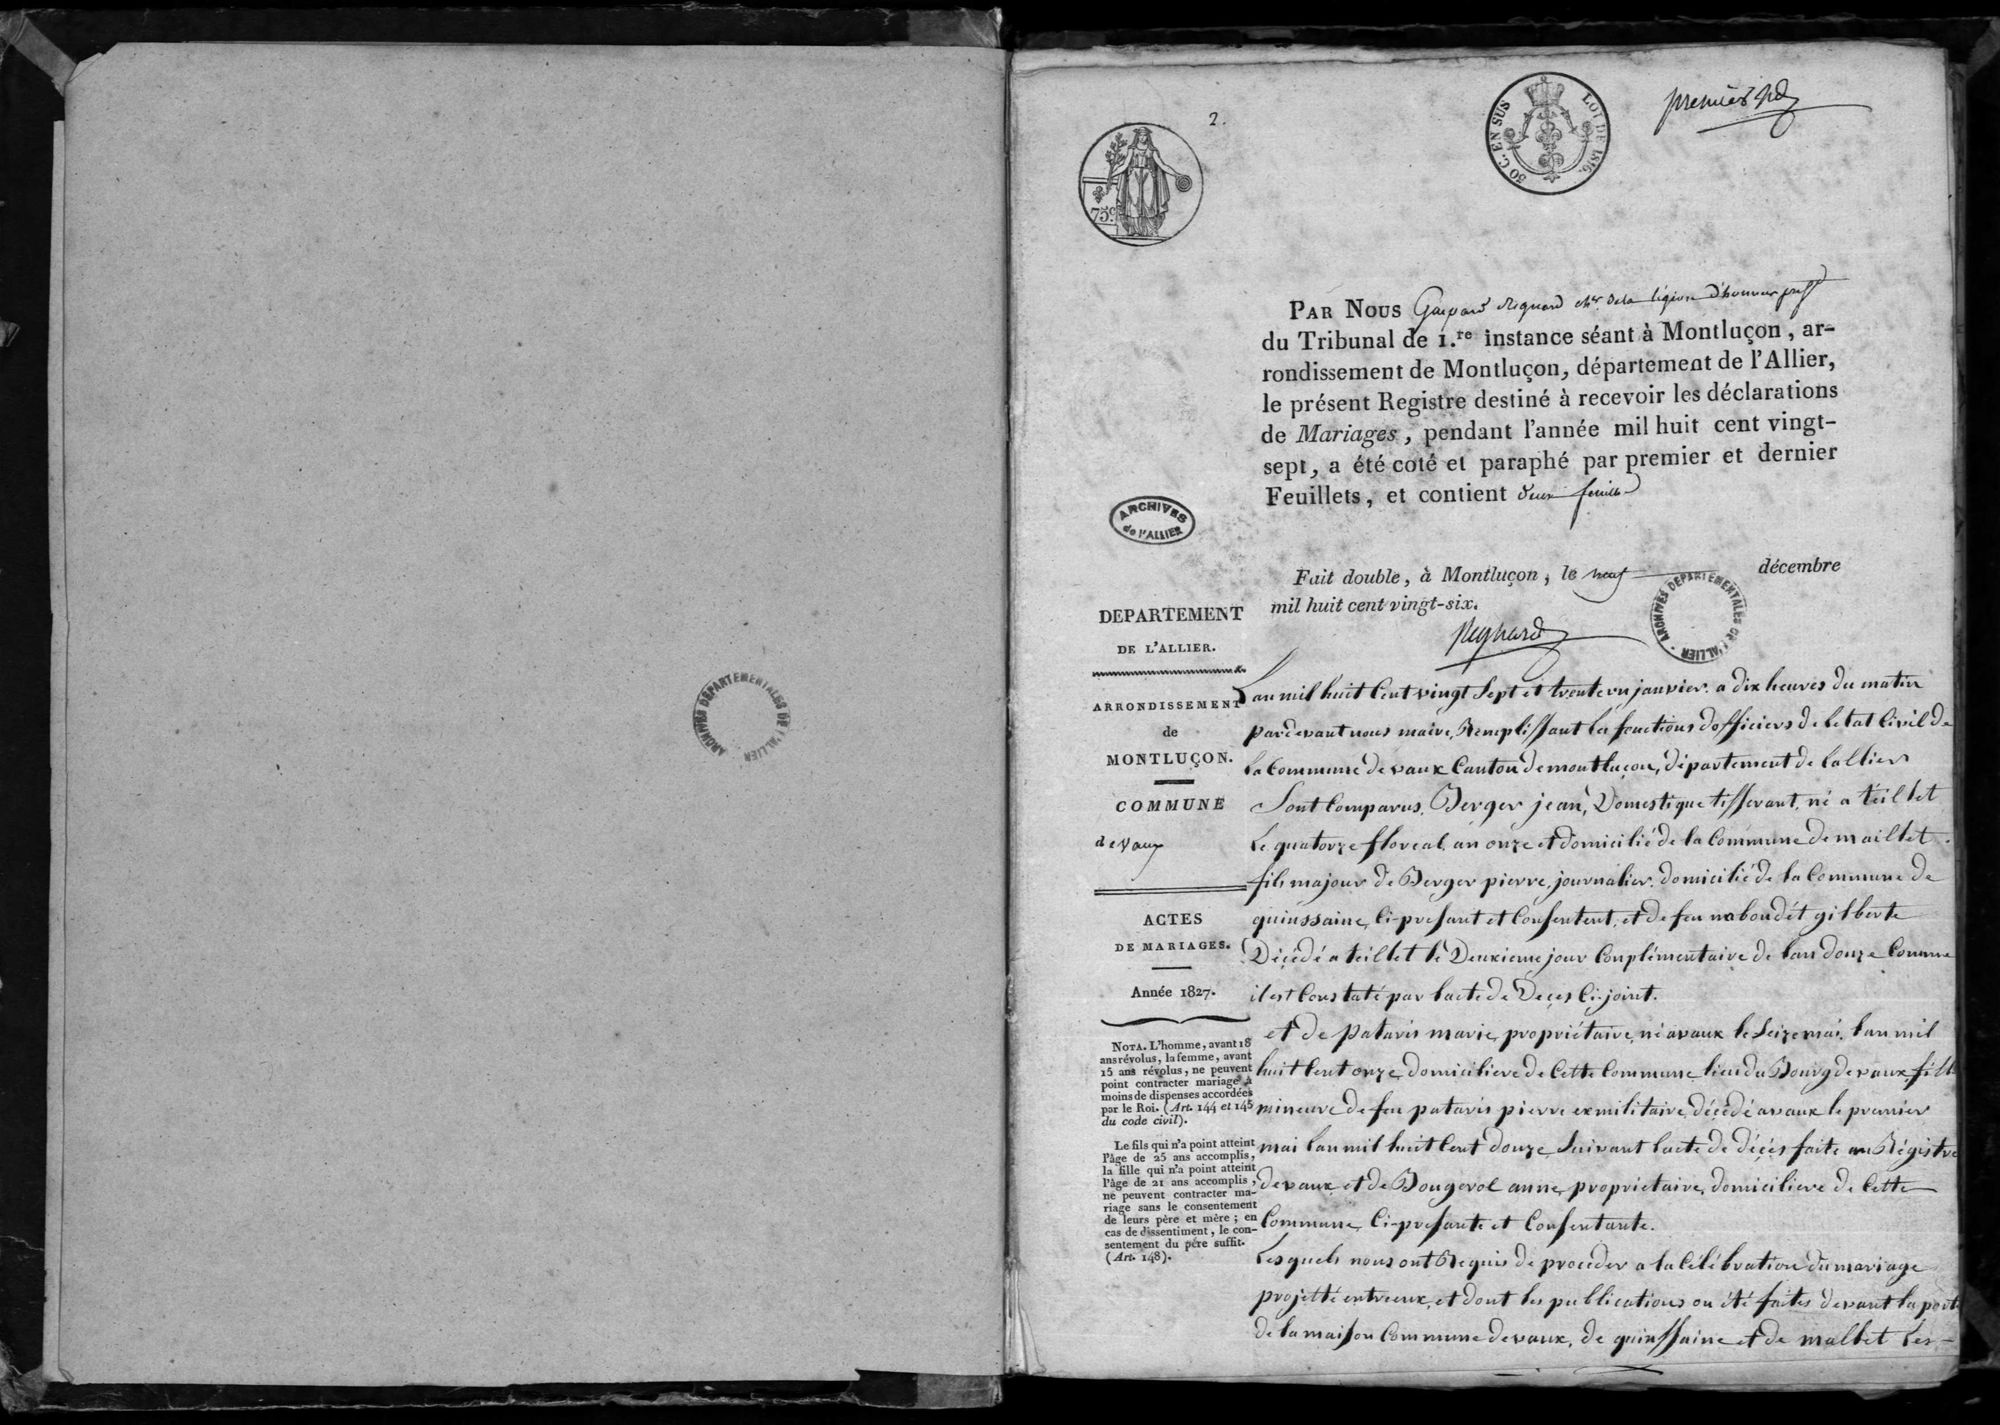 2.
75c.
30 C. EN SUS
LOI DE 1816.
premier
PAR NOUS Gaspard Regnard chr. de la légion d'honneur
du Tribunal de 1.re instance séant à Montluçon, ar-
rondissement de Montluçon, département de l'Allier,
le présent Registre destiné à recevoir les déclarations
de Mariages, pendant l'année mil huit cent vingt-
sept, a été coté et paraphé par premier et dernier
Feuillets, et contient deux feuillets
ARCHIVES
de l'ALLIER
Fait double, à Montluçon, le neuf décembre
mil huit cent vingt-six.
Regnard
ARCHIVES DÉPARTEMENTALES DE L'ALLIER
ARCHIVES DÉPARTEMENTALES DE L'ALLIER
DEPARTEMENT
DE L'ALLIER.
ARRONDISSEMENT
de
MONTLUÇON.
COMMUNE
de Vaux
ACTES
DE MARIAGES.
Année 1827.
NOTA. L'homme, avant 18
ans révolus, la femme, avant
15 ans révolus, ne peuvent
point contracter mariage à
moins de dispenses accordées
par le Roi. (Art. 144 et 145
du code civil).
Le fils qui n'a point atteint
l'âge de 25 ans accomplis,
la fille qui n'a point atteint
l'âge de 21 ans accomplis,
ne peuvent contracter ma-
riage sans le consentement
de leurs père et mère; en
cas de dissentiment, le con-
sentement du père suffit.
(Art. 148).
L'an mil huit Cent vingt Sept et trente un janvier. a dix heures du matin
pardevant nous maire, Remplissant les fonctions d'officiers de letat Civil de
la Commune de vaux Canton de montluçon, département de lallier
Sont Comparus. Berger jean, Domestique tisserant, né a teillet
Le quatorze floreal, an onze et domicilié de la Commune de maillet.
fils majour de Berger pierre, journalier, domicilié de la Commune de
quinssaine, Ci-presant et Consentent, et de feu naboudét gilberte
Décédé a teillet le Deuxieme jour Conplémentaire de lan douze Comme
il est Constaté par lacte de Deçes Ci-joint.
et de pataris marie, propriétaire, né avaux le Seize mai, lan mil
huit Cent onze, domiciliere de Cette Commune lieu du Bourg de vaux, fille
mineure de feu pataris pierre exmilitaire, décédé avaux le premier
mai lan mil huit Cent douze Suivant lacte de déçès faite au Régistre
de vaux et de Bougerol anne, proprietaire, domiciliere de Cette
Commune, Ci-presante et Consentante.
Lesquels nous ont Requis de proceder a la Célébration du mariage
projetté entreeux, et dont les publications on été faites devant la porte
de la maison Commune de vaux, de quinssaine et de mallet Les-